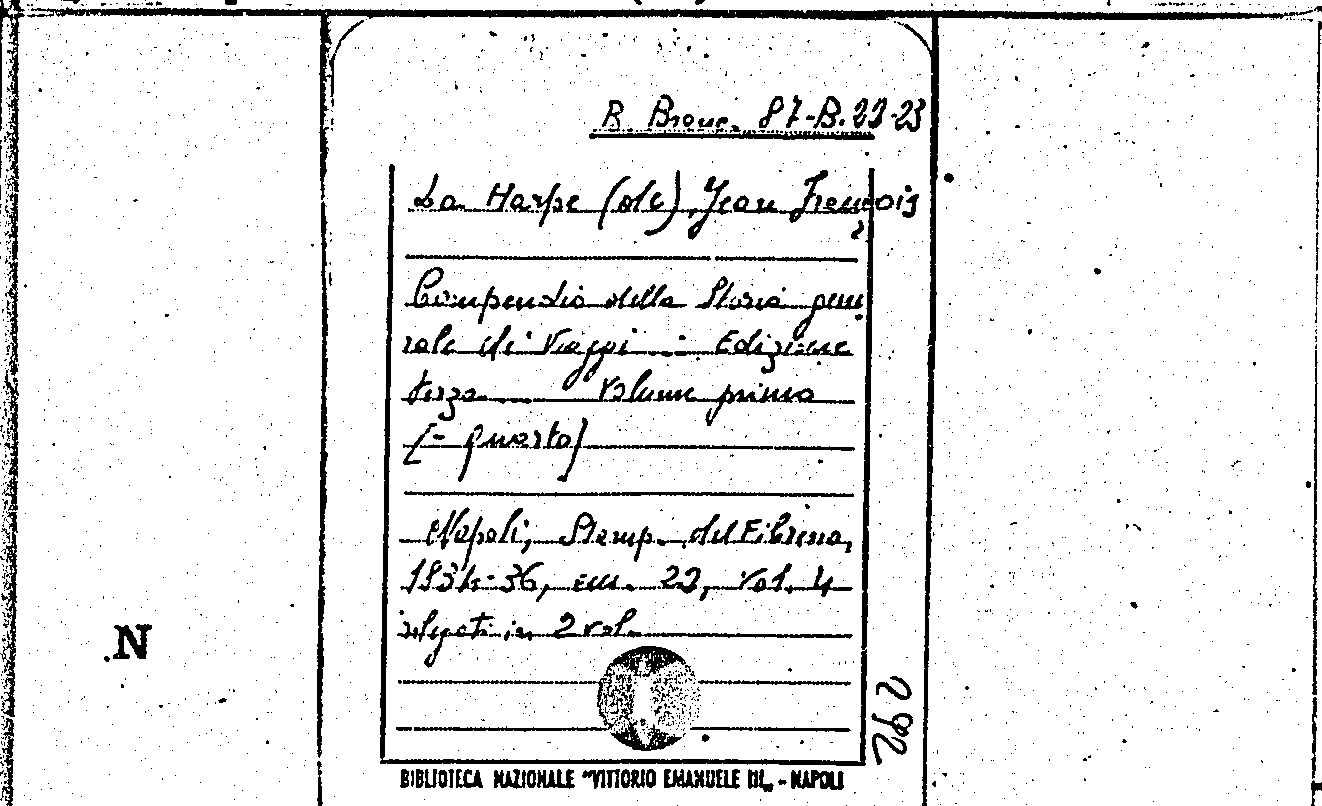 B. Branc. 87-B.22-23
La Harpe (de), Jean François
Compendio della Storia gene
rale di Viaggi ... Edizione
terza .... Volume primo
[- quarto]
Napoli, Stamp. del Fibreno,
1834-36, cm. 22, vol. 4
rilegati in 2 vol.
N
BIBLIOTECA NAZIONALE "VITTORIO EMANUELE III„ - NAPOLI